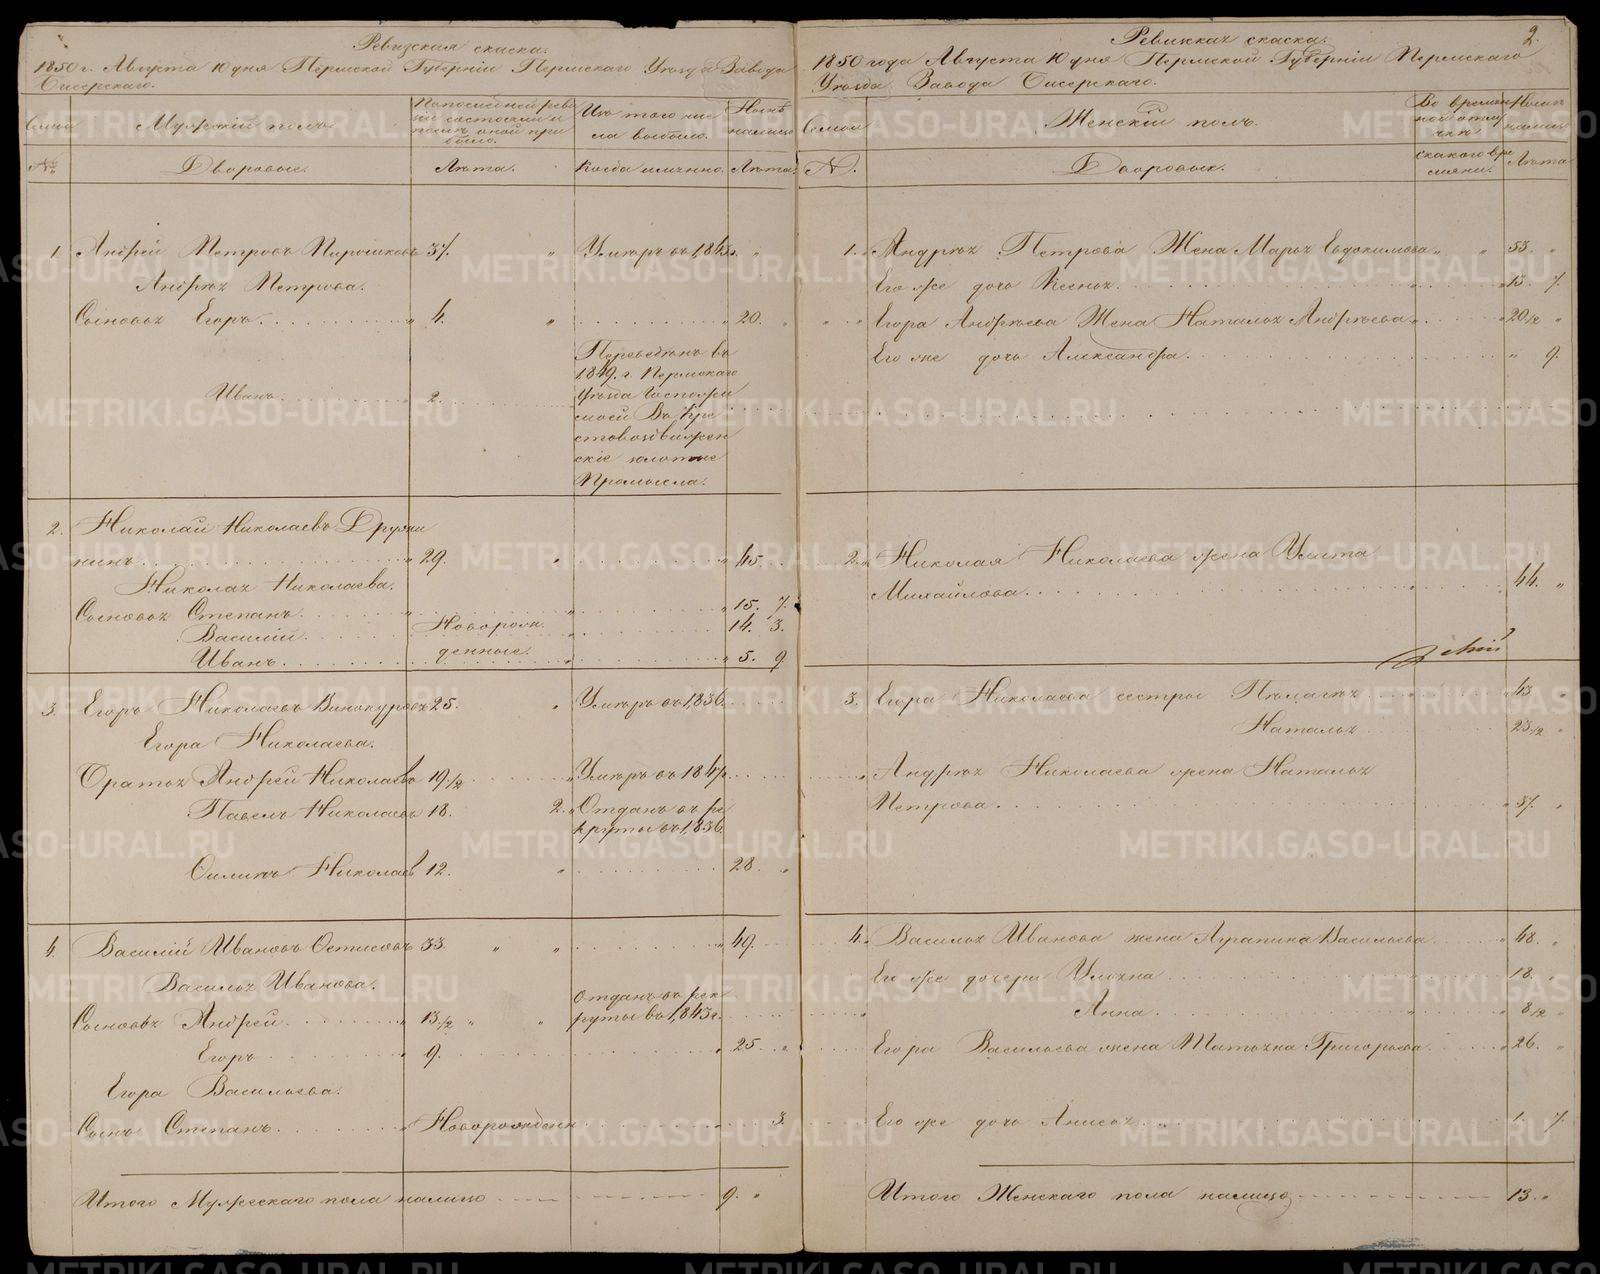 Ревизская сказка.
1850 г. Августа 10 дня Пермской Губерніи Пермскаго Уезда Завода
Бисерскаго.
Мужескій полъ
По последней реви
зіи состояло и
после оной при
было.
Изъ того чис
ла выбыло.
Ныне
на лицо
№
Дворовые.
Лета.
Когда имянно.
Лета.
1. Андрей Петровъ Пирожковъ 37. " Умеръ въ 1,843 г. "
Андрея Петрова.
Сыновья Егоръ 4. " 20. "
Иванъ 2.
Переведенъ въ
1849. г. Пермскаго
Уезда Госпожи
моей въ Кре
стовоздвижен
скіе золотые
Промысла.
2. Николай Николаевъ Дружи
нинъ 29. " 45.
Николая Николаева.
Сыновья Степанъ " 15. 7.
Василій Новорож 14. 3.
Иванъ денные. 5. 9.
3. Егоръ Николаевъ Винокуровъ 25. " Умеръ въ 1,836.
Егора Николаева.
Братья Андрей Николаевъ 19 1/2 Умеръ въ 1847.
Павелъ Николаевъ 18. 2. Отданъ въ ре
круты въ 1,836.
Николаевъ 12. " 28. "
4. Василій Ивановъ 33. " " 49.
Василья Иванова.
Отданъ въ рек
Сыновья Андрей 13 1/2 " " руты въ 1,843 г.
Егоръ 9. 25. "
Егора Васильева.
Сынъ Степанъ Новорожденн 3.
Итого Мужескаго пола налицо 9. "
2.
Ревизская сказка.
1850 года Августа 10 дня Пермской Губерніи Пермскаго
Уезда Завода Бисерскаго.
Женскій полъ.
Во времен
ной отлу
чке
Ныне
налицо
№.
Дворовые.
съ какого вре
мяни.
Лета
1. Андрея Петрова Жена Марья Евдокимова " " 55. "
Его же дочь Ксенья 13. 7.
Егора Андреева Жена Наталья Андреева 20 1/2 "
Его же дочь Александра " 9.
2. Николая Николаева жена Улита
Михайлова 44. "
3. Егора Николаева сестры Пелагея 43.
Наталья 23 1/2 "
Андрея Николаева жена Наталья
Петрова 37. "
4. Василья Иванова жена Аграпина Васильева 48. "
Его же дочери Ульяна 18. "
Анна 8 1/2 "
Егора Васильева жена Татьяна Григорьева 26. "
Его же дочь Анисья 1. 7.
Итого Женскаго пола налицо 13. "
METRIKI.GASO-URAL.RU